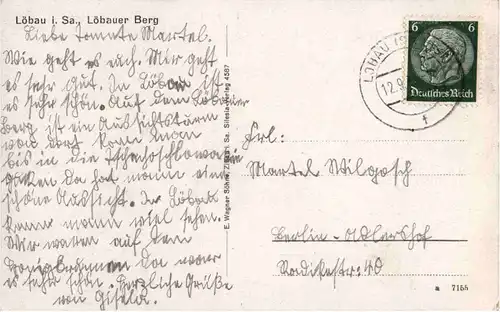 Löbau i. Sa., Löbauer Berg
Liebe Tannte Martel.
Wie geht es euch. Mir geht
es sehr gut. In Löbau ist
es sehr schön. Auf dem Löbauer
Berg ist ein Aussichtsturm
von dort kann man
bis in die Tschechoslowa
da hat mann eine
schöne Aussicht. In Löbau
kann mann viel sehen.
Wir waren auf dem
da war
es sehr schön. Herzliche Grüße
von Gisela.
E. Wagner Söhne, Zittau i. Sa. Silesia-Verlag 4587
6 6
Deutsches Reich
LÖBAU (S
12.9.
f
Frl:
Martel Wilgosch
Berlin-Adlershof
Radikestr: 40
a 7155